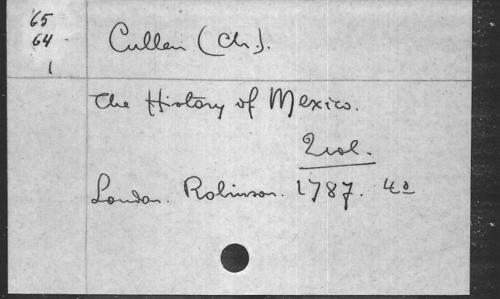 65
64
1
Cullen (Ch.).
The History of Mexico.
2 vol.
London. Robinson. 1787. 4o